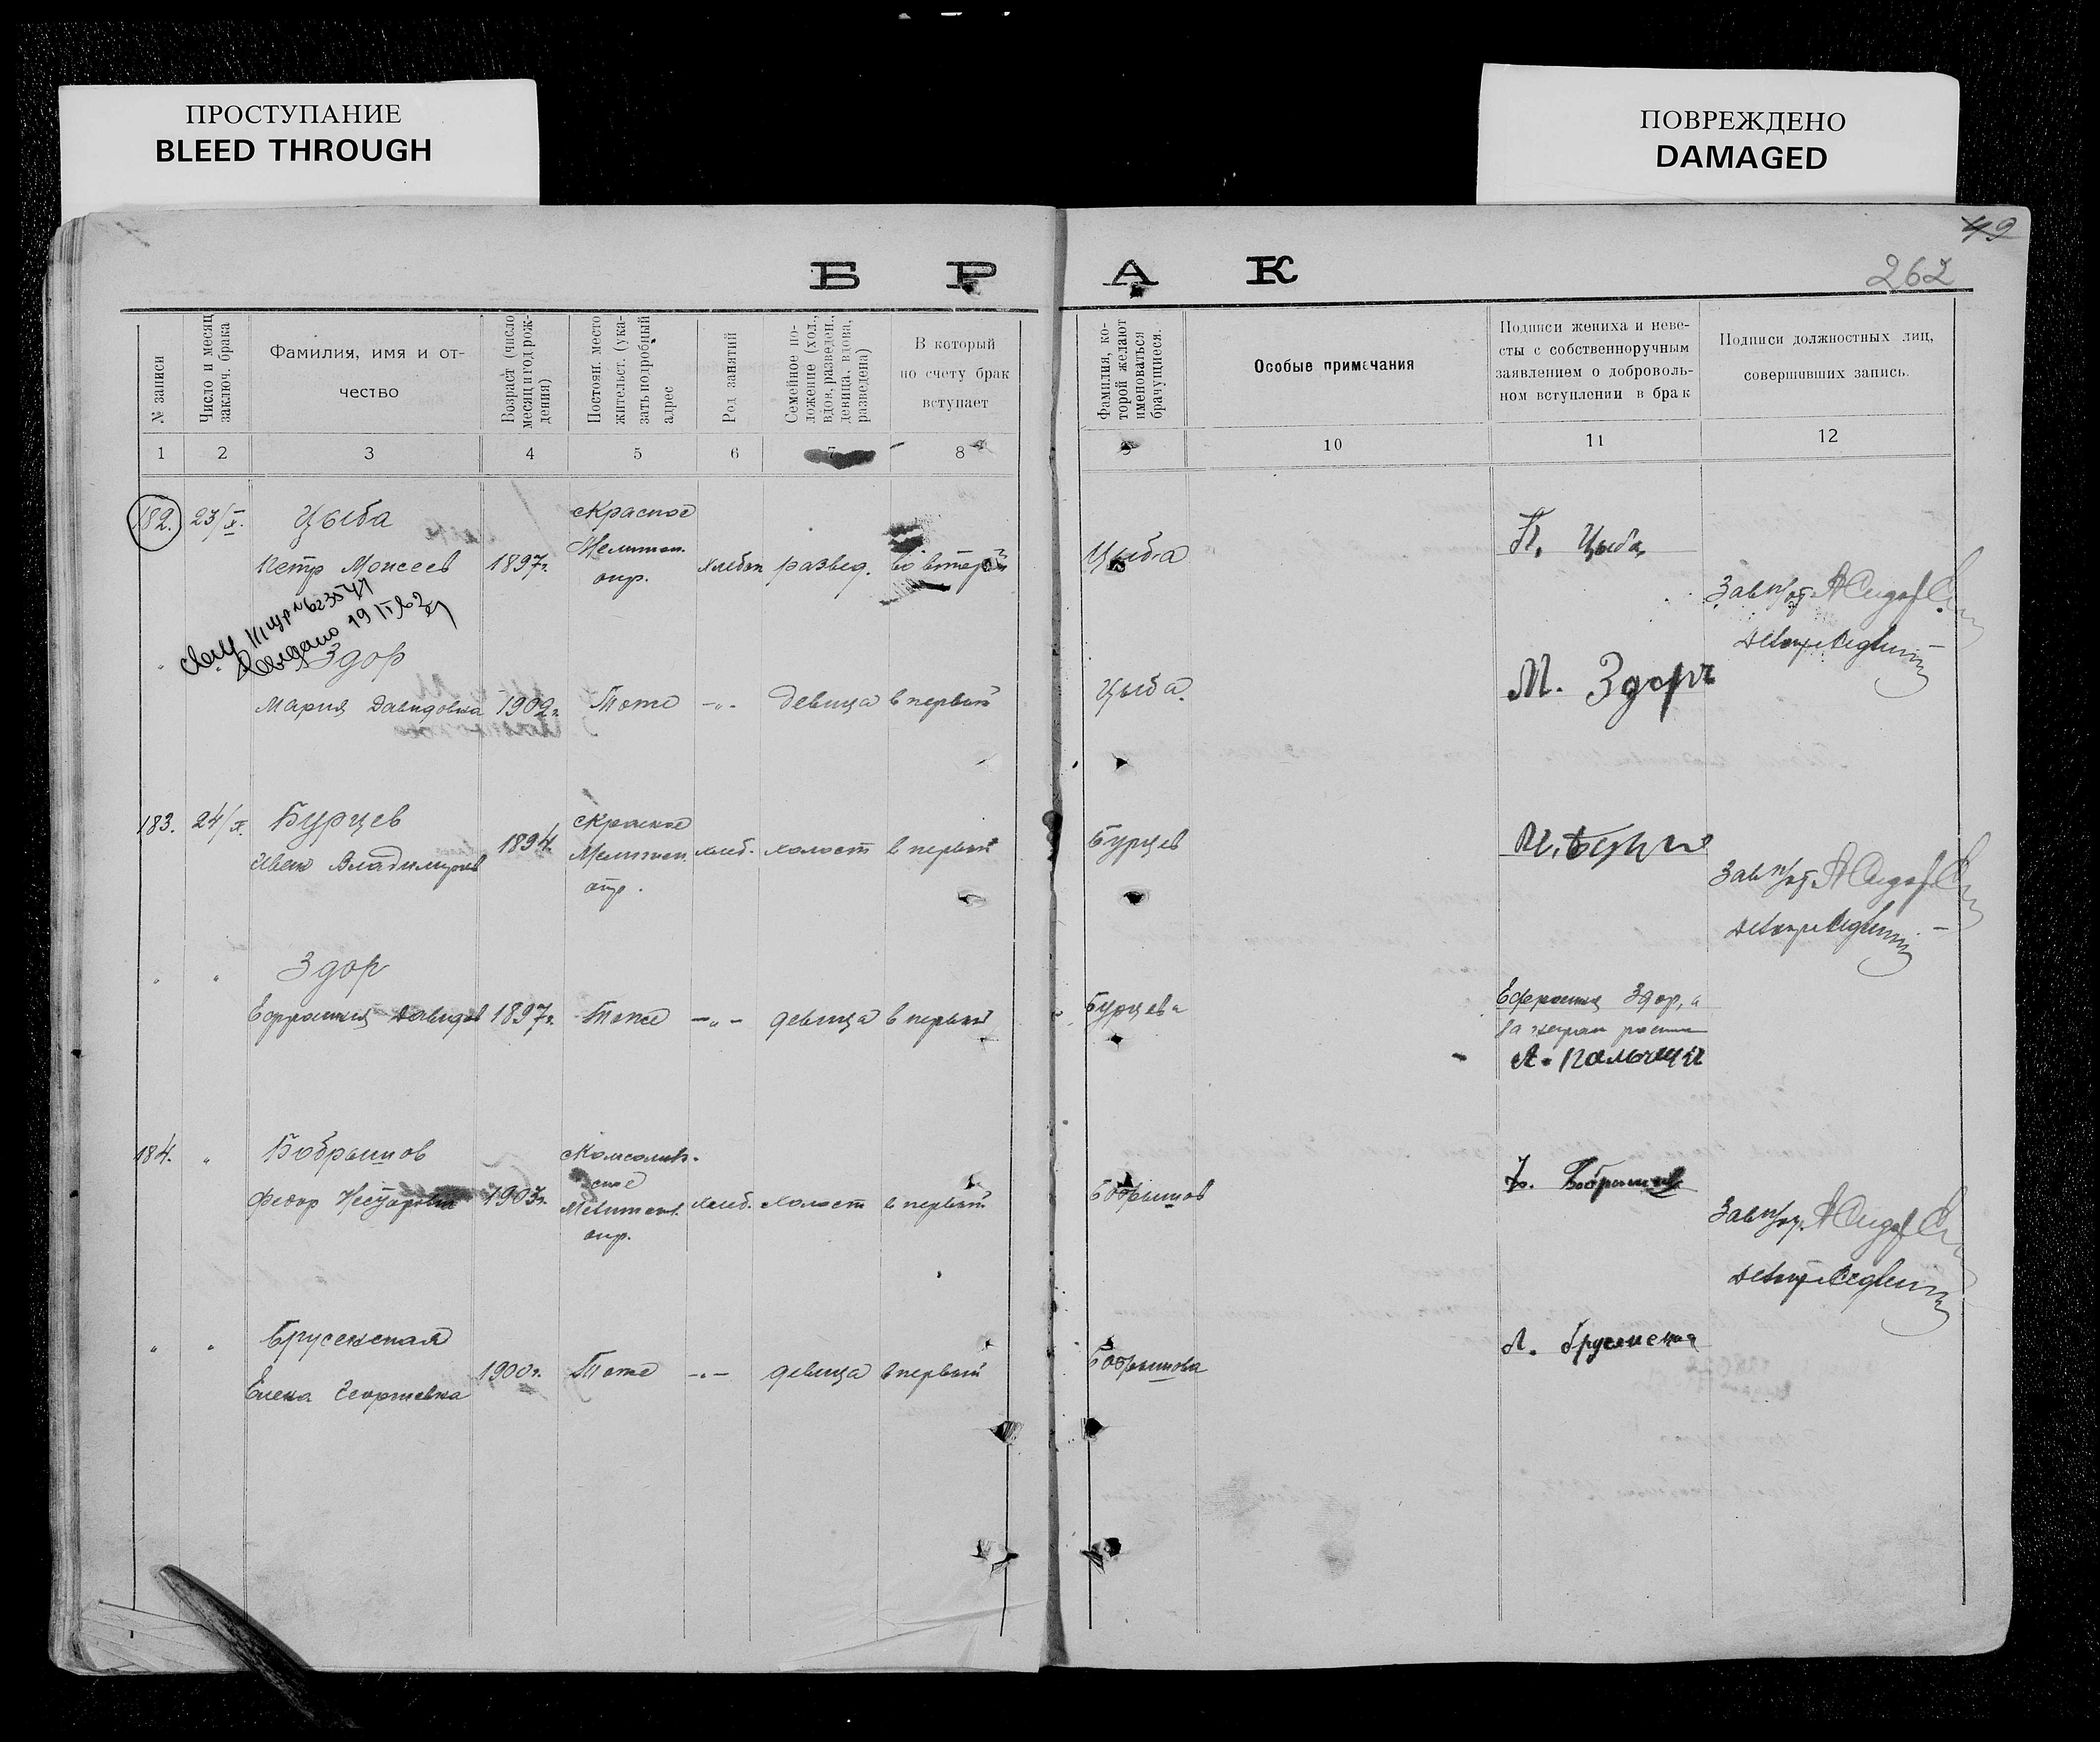 ПРОСТУПАНИЕ
BLEED THROUGH
ПОВРЕЖДЕНО
DAMAGED
49
262
Б Р А К
№ записи
Число и месяц
заключ. брака
Фамилия, имя и от-
чество
Возраст (число
месяц и год рож-
дения)
Постоян. место
жительст. (ука-
зать подробный
адрес
Род занятий
Семейное по-
ложение (хол.,
вдов., разведен.,
девица, вдова,
разведена)
В который
по счету брак
вступает
Фамилия, ко-
торой желают
именоваться
брачущиеся.
Особые примечания
Подписи жениха и неве-
сты с собственноручным
заявлением о доброволь-
ном вступлении в брак
Подписи должностных лиц,
совершивших запись.
1 2 3 4 5 6 7 8 9 10 11 12
182. 23/X. Цыба
Петр Моисеев 1897г.
Красное
Мелитоп.
окр.
хлебоп развед. во второй
Цыба
П. Цыба
Выдано 19
" Здор
Мария Давидовна 1902г. Тоже -"- девица в первый
Цыба.
М. Здор
183. 24/X. Бурцев
Иван Владимиров 1894.
Красное
Мелитоп.
окр.
хлеб. холост в первый
Бурцев
" " Здор
Ефросиния Давидов 1897г. Тоже -"- девица в первый
Бурцева
Ефросиния Здор, а
184. " Бобрышов
Федор 1903г.
Мелитоп.
окр.
хлеб. холост в первый
Бобрышов
Ф. Бобрышов
" " Брусенская
Елена Георгиевна 1900г. Тоже -"- девица в первый
Бобрышова